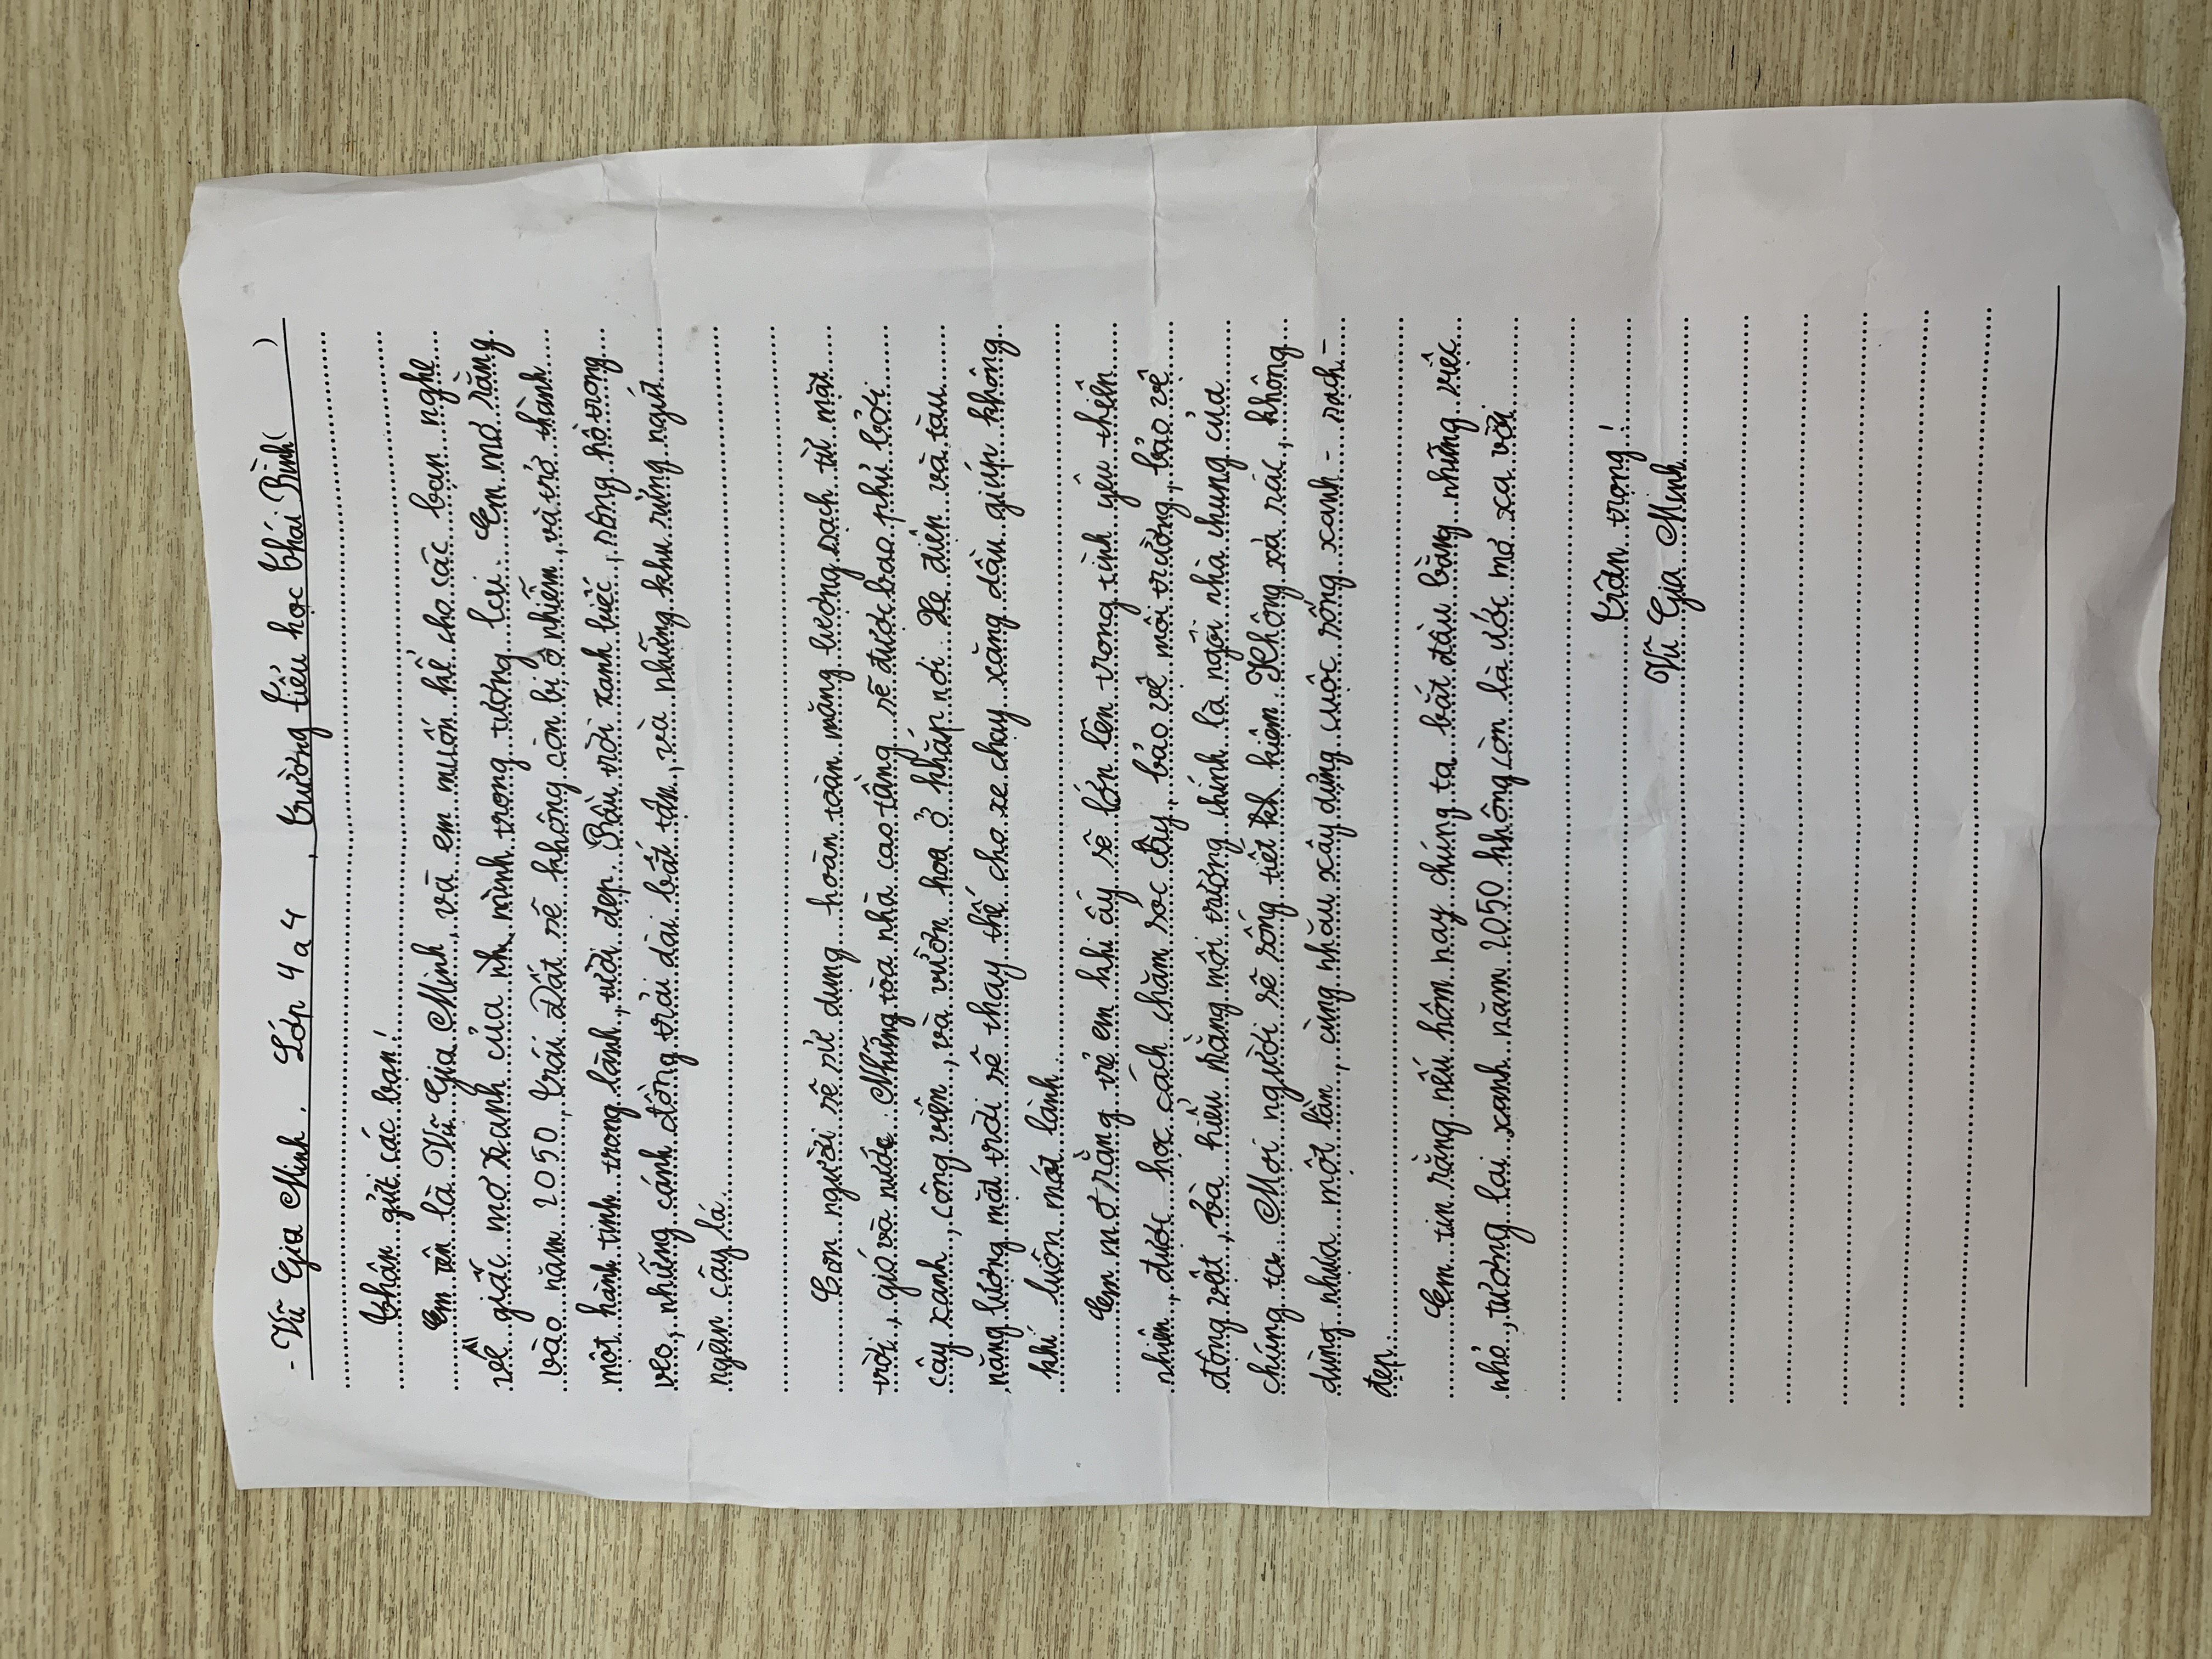 - Vũ Gia Minh. Lớp 4a4, trường tiểu học Thái Bình( )
Thân gửi các bạn!
Em tên là Vũ Gia Minh, và em muốn kể cho các bạn nghe
về giấc mơ xanh của mình trong tương lai. Em mơ rằng
vào năm 2050, trái Đất sẽ không còn bị ô nhiễm, và trở thành
một hành tinh trong lành, tươi đẹp. Bầu trời xanh biếc, sông hồ trong
veo, những cánh đồng trải dài bất tận, và những khu rừng ngút
ngàn cây lá.
Con người sẽ sử dụng hoàn toàn năng lượng sạch từ mặt
trời, gió và nước. Những tòa nhà cao tầng sẽ được bao phủ bởi
cây xanh, công viên, và vườn hoa ở khắp nơi. Xe điện và tàu
năng lượng mặt trời sẽ thay thế cho xe chạy xăng dầu giúp không
khí luôn mát lành.
Em mơ rằng trẻ em khi ấy sẽ lớn lên trong tình yêu thiên
nhiên, được học cách chăm sóc cây, bảo vệ môi trường, bảo vệ
động vật, và hiểu rằng môi trường chính là ngôi nhà chung của
chúng ta. Mọi người sẽ sống tiết kiệm. Không xả rác, không
dùng nhựa một lần, cùng nhau xây dựng cuộc sống xanh - sạch -
đẹp.
Em tin rằng nếu hôm nay chúng ta bắt đầu bằng những việc
nhỏ, tương lai xanh năm 2050 không còn là ước mơ xa vời
Trân trọng!
Vũ Gia Minh